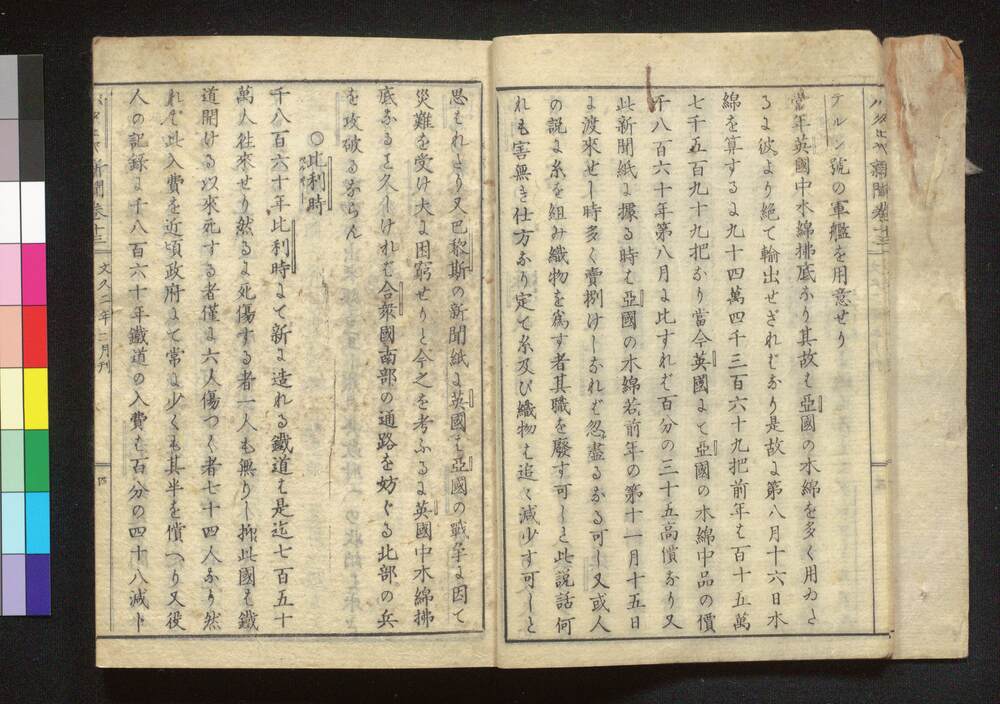 テルン號の軍艦を用意せり
當年英國中水綿拂底なり其故は亞國の水綿を多く用ゐた
るに彼より絶て輸出せざればなり是故に第八月十六日水
綿を算するに九十四萬四千三百六十九把前年は百十五萬
七千五百九十九把なり當今英國にて亞國の水綿中品の價
千八百六十年第八月に比すれば百分の三十五高價なり又
此新聞紙に據る時は亞國の水綿若前年の第十一月十五日
に渡來せし時多く賣捌けしなれば忽盡るなる可し又或人
の説に糸を組み織物を爲す者其職を廢す可しと此説話何
れも害無き仕方なり定て糸及び織物は追々減少す可しと
思はれたり又巴黎斯の新聞紙に英國は亞國の戰爭に因て
災難を受け大に困窮せりと今之を考ふるに英國中水綿拂
底なるは久しければ合衆國南部の通路を妨ぐる北部の兵
を攻破るならん
○比利時
千八百六十年比利時にて新に造れる鐵道は是迄七百五十
萬人往來せり然るに死傷する者一人も無りし抑此國は鐵
道開ける以來死する者僅に六人傷つく者七十四人なり然
れば此入費を近頃政府にて常に少くも其半を償へり又役
人の記録に千八百六十年鐵道の入費は百分の四十八減ト
新聞卷十三 文久二年二月刊 四